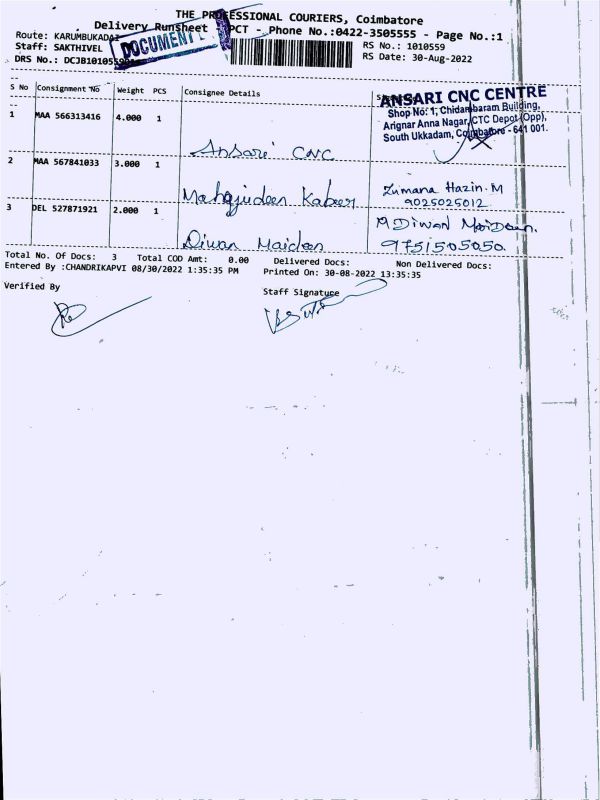 THE PROFESSIONAL COURIERS, Coimbatore
Delivery Runsheet PCT - Phone No.:0422-3505555 - Page No.:1
Route: KARUMBUKADAI
DOCUMENT
RS No.: 1010559
Staff: SAKTHIVEL
RS Date: 30-Aug-2022
DRS No.: DCJB101055
S No Consignment No Weight PCS Consignee Details
ANSARI CNC CENTRE
Shop No: 1, Chidambaram Building,
Arignar Anna Nagar, CTC Depot (Opp),
South Ukkadam, Coimbatore - 641 001.
1 MAA 566313416 4.000 1
Ansari CNC
2 MAA 567841033 3.000 1
Zumana Hazin. M
Kabeer 9025025012
3 DEL 527871921 2.000 1
M Diwan Maideen.
Diwan Maideen 9751505050
Total No. Of Docs: 3 Total COD Amt: 0.00 Delivered Docs: Non Delivered Docs:
Entered By :CHANDRIKAPVI 08/30/2022 1:35:35 PM Printed On: 30-08-2022 13:35:35
Verified By Staff Signature